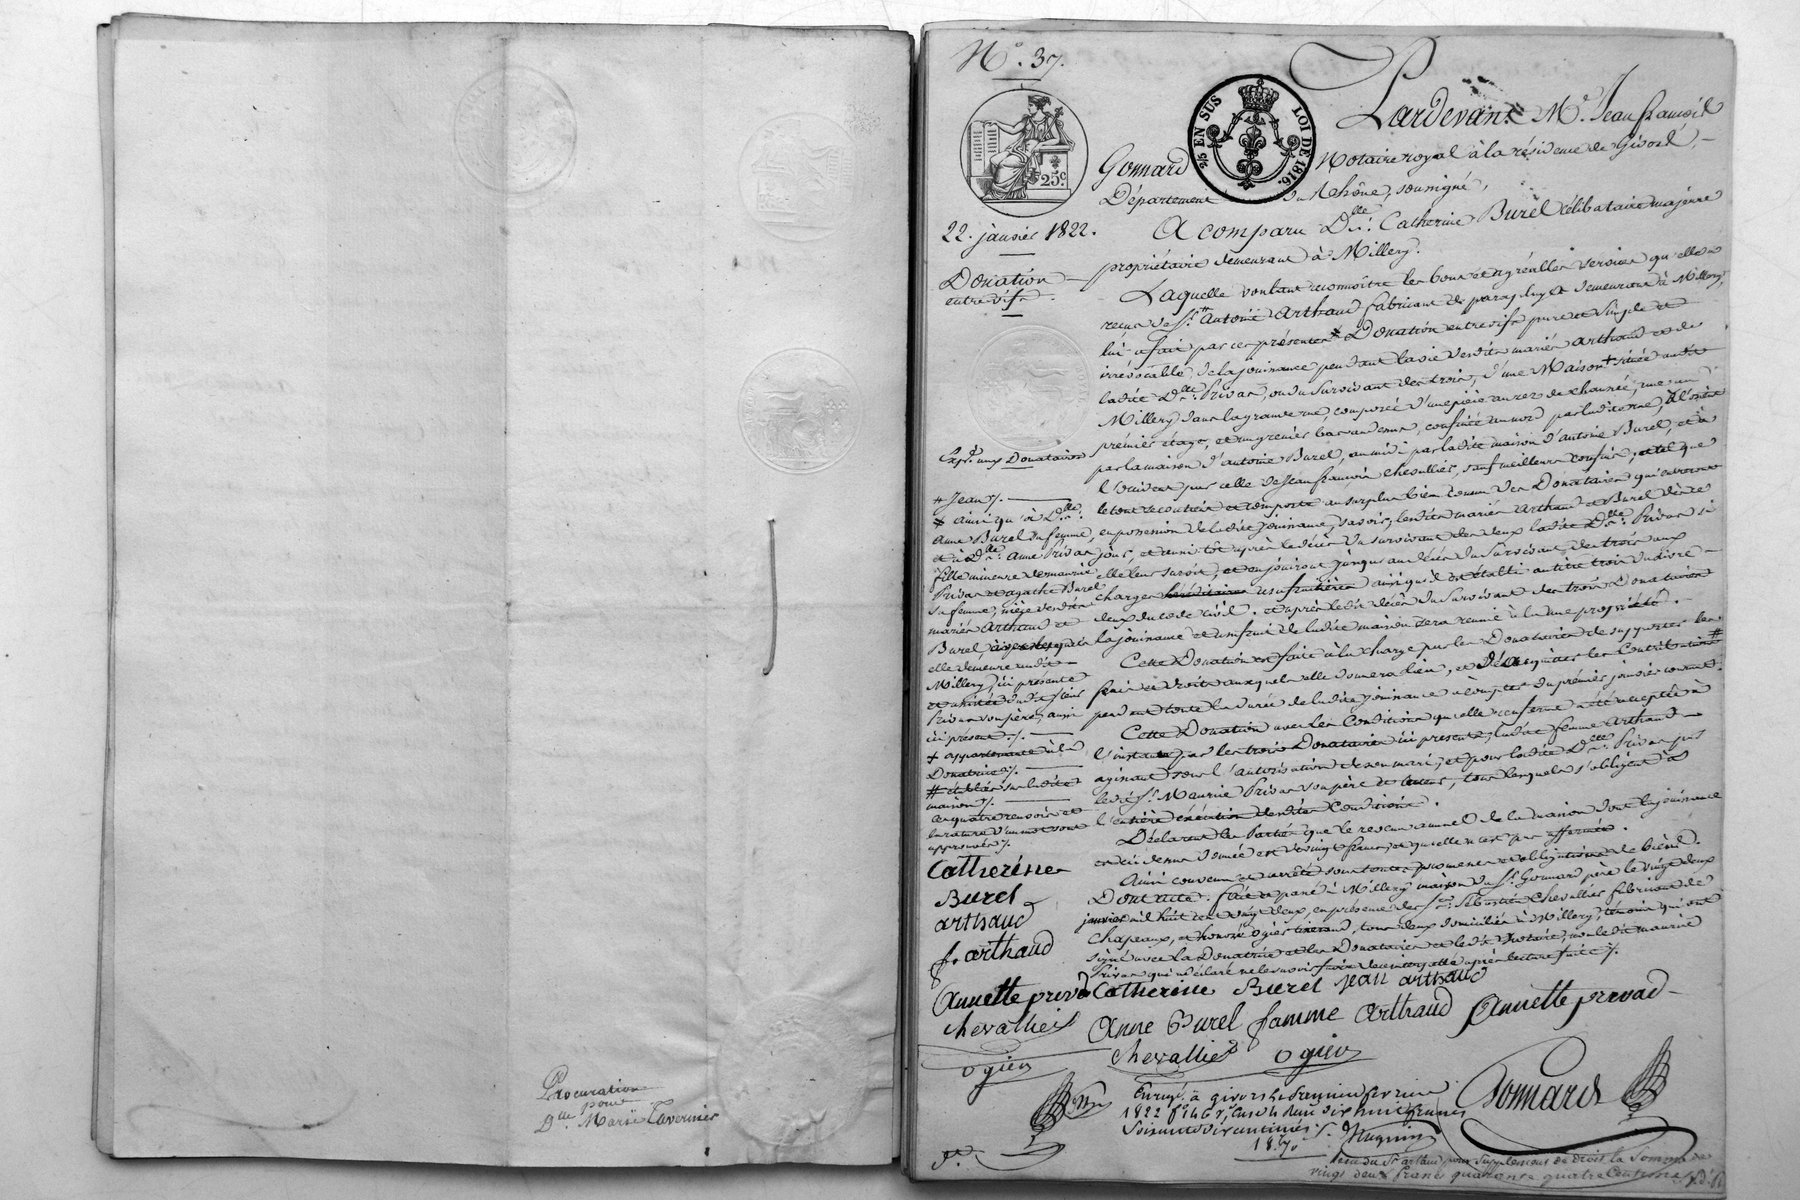 Procuration
pour
Dlle. Marie Tavernier
N°. 37.
25 EN SUS
LOI DE 1816.
25c.
Pardevant Me. Jean françois
Gonnard Notaire royal à la résidence de Givors,
Département du Rhône, soussigné,
22. janvier 1822.
A comparu Dlle. Catherine Burel célibataire majeure
propriétaire demeurant à Millery.
Donation
entre vifs.
Laquelle voulant reconnoître les bons et agréables services qu'elle a
reçus de Sr. # Antoine Arthaud fabricant de parapluyes demeurant à Millery,
lui a fait par ces présentes * Donation entrevifs pure et simple et
irrévocable de la jouissance pendant la vie desdits mariés Arthaud et de
ladite Dlle. Privas, ou du survivant des trois, d'une Maison + située audit
Millery dans la grande rue, composée d'une pièce au rez de chaussée, une au
premier étage, et un grenier au dessus, confinée au nord par ladite rue, à l'orient
par la maison d'antoine Burel, au midi par ladite maison d'antoine Burel, et à
l'occident par celle de Jean françois Chevallier, sauf meilleurs confins, et tel que
Expt. aux Donataires
# Jean ./.
* ainsi qu'à Dlle.
Anne Burel sa femme,
et à Dlle. Anne Privas
fille mineure de maurice
Privas et agathe Burel
sa femme, nièce desdits
mariés Arthaud et
Burel,
elle demeure audit
Millery, ici présente
Privas son père, aussi
ici présent ./.
+ appartenante à la
Donatrice ./.
# établies sur ladite
maison ./.
ces quatre renvois et
la rature d'un mot sont
approuvés ./.
le tout se contient et comporte au surplus bien connu des Donataires qui entreront
en possession de ladite jouissance, savoir, lesdits mariés Arthaud et Burel dès ce
jour, et aussitôt après le décès du survivant des deux ladite Dlle. Privas si
elle leur survit, et en jouiront jusques au décès du survivant des trois aux
charges usufruitières ainsi qu'il est établi au titre trois du livre
deux du code civil. et après ledit décès du survivant des trois Donataires
la jouissance et usufruit de ladite maison sera réunie à la nue propriété.
Cette Donation est faite à la charge par les Donataires de supporter les
frais et droits auxquels elle donnera lieu, et d'acquitter les Contributions #
pendant toute la durée de ladite jouissance à compter du premier janvier courant.
Cette Donation avec les Conditions qu'elle renferme a été acceptée à
l'instant par les trois Donataires ici présents, ladite femme Arthaud
agissant sous l'autorisation de son mari, et pour ladite Dlle. Privas par
ledit Sr. Maurice Privas son père et tuteur, tous lesquels s'obligent à
l'entière exécution desdites Conditions.
Déclarent les Parties que le revenu annuel de la maison dont la jouissance
est ci dessus donnée est de vingt francs, et qu'elle n'est pas affermée.
Ainsi convenu et arrêté sous toutes promesses et obligations de biens.
Dont acte. fait et passé à Millery maison du Sr. Gonnard père le vingt deux
janvier mil huit cent vingt deux, en présence des Srs. Sébastien Chevallier fabricant de
chapeaux, et honoré Ogier tisserand, tous deux domiciliés à Millery, témoins qui ont
signé avec la Donatrice et les Donataires et ledit Notaire, non ledit maurice
Privas qui a déclaré ne le savoir faire de ce interpellé après lecture faite ./.
Catherine
Burel
arthaud
f. arthaud
Annette privad
Chevallier
ogier
Catherine Burel Jean arthaud
Anne Burel famme Arthaud Annette privad
Chevallier ogier
Gonnard
Enregt. à givors le premier février
1822 fo. 46 Ro, Case 4. Reçu dix huit francs
Soixante dix centimes
18f.70
Reçu du Sr. artaud pour supplement de droit la Somme de
vingt deux francs quarante quatre centimes